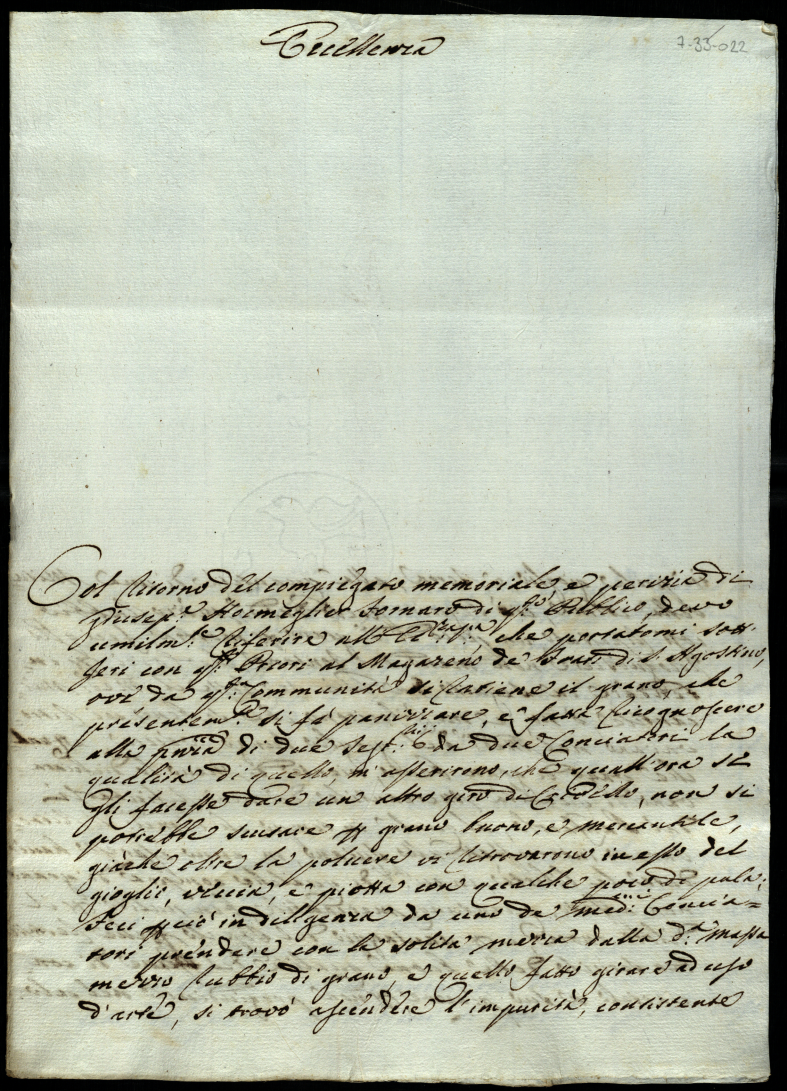 Eccellenza
7-33-022
Col ritorno del compiegato memoriale e perizia di
Giusep.e Hocmeglier Fornaro di q.to Publico, devo
umilm.te riferire all' che portatomi
Jeri con q.ti Priori al Magazeno de Frati di S. Agostino,
ove da q.ta Communità si ritiene il grano, che
presentem.te si fà panizzare, e fatta ricognoscere
alla pñza di due da due Conciatori la
qualità di quello, m'asserirono, che quall'ora si
gli facesse dare un altro giro di Crivello, non si
potrebbe scusare p grano buono, e mercantile,
giàche oltre la polvere vi ritrovarono in esso del
gioglio, veccia, e piotta con qualche poco di pula;
Feci p ciò in diligenza da uno de med.mi Concia=
tori prendere con la solita mezza dalla d.a massa
mezzo rubbio di grano, e quello fatto girare ad uso
d'arte, si trovò ascendere l'impurità, consistente